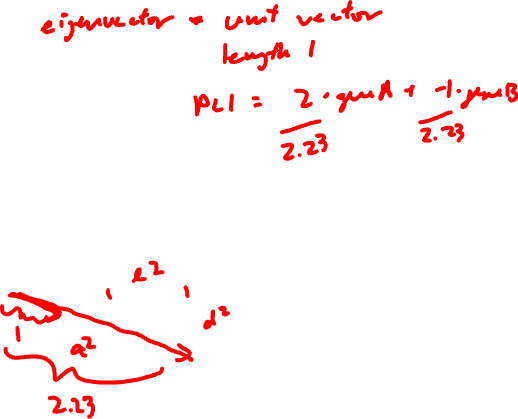 eigenvector = unit vector
length 1
PC1 = 2/2.23 · gene A + -1/2.23 · gene B
e²
d²
1
a²
2.23